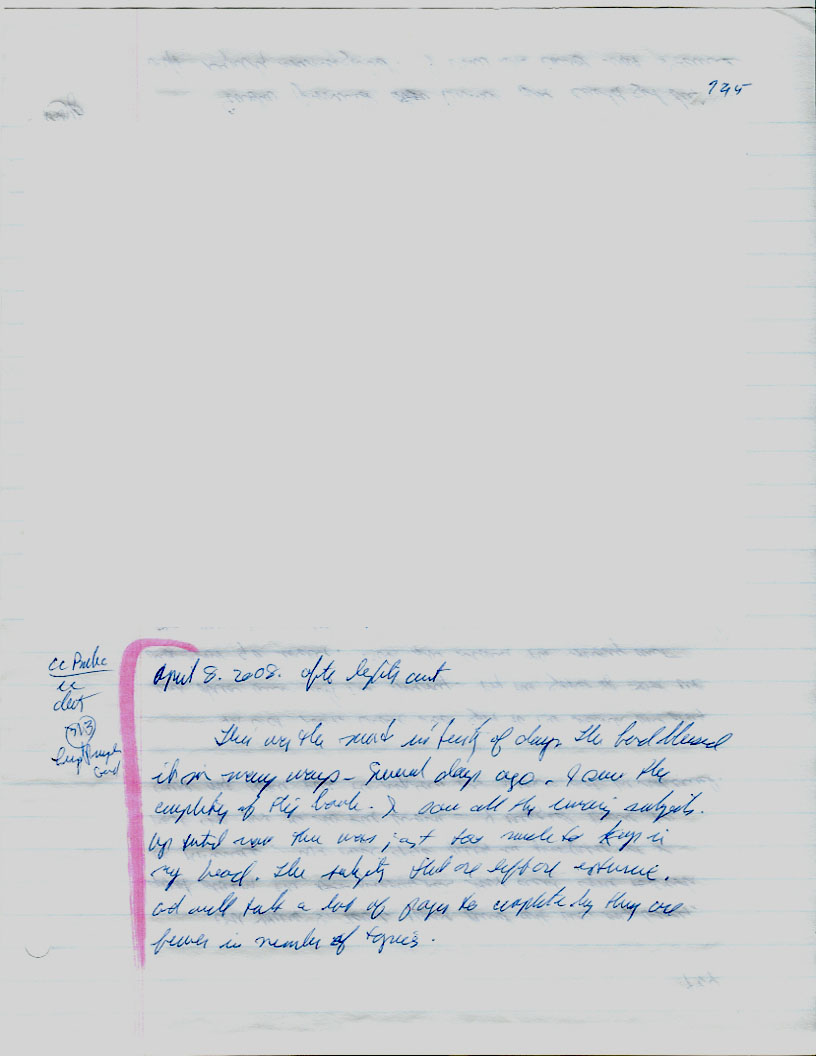 745
April 8. 2008. after lights out
This was the most intense of days. The Lord blessed
it in many ways - Several days ago. I saw the
completing of this book. I saw all the missing subjects.
Up until now there was just too much to keep in
my head. The subjects that are left are extensive.
and will take a lot of pages to complete by they are
fewer in number of topics.